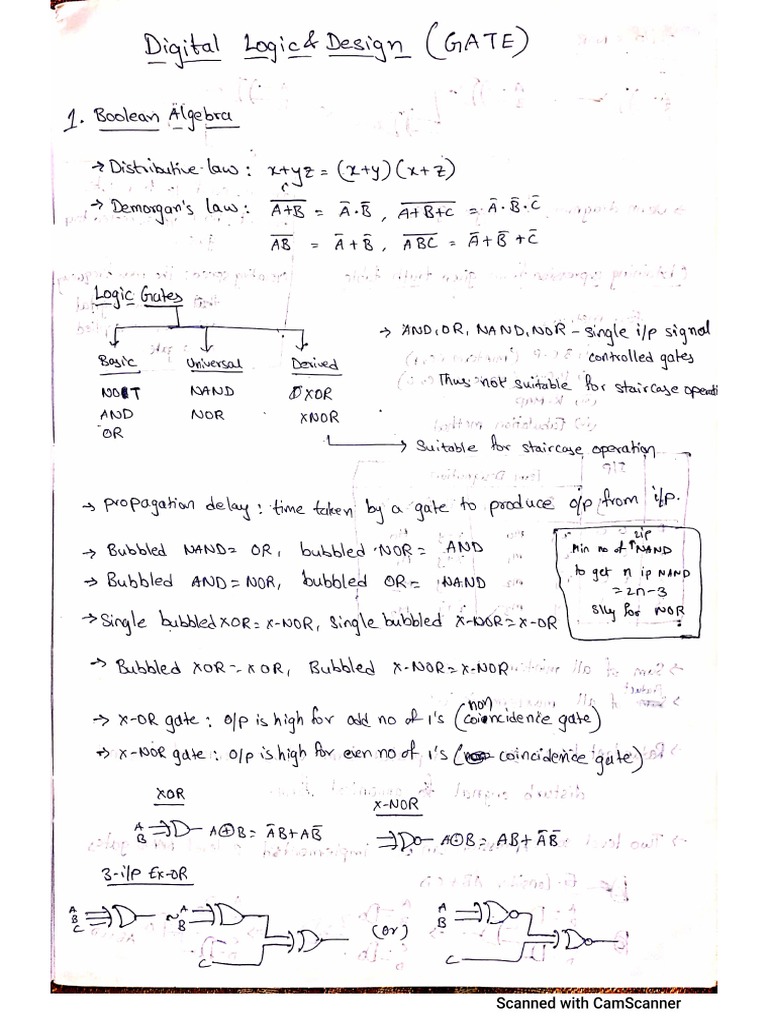 Digital Logic & Design (GATE)
1. Boolean Algebra
→ Distributive law: x+yz = (x+y)(x+z)
→ Demorgan's law: A̅+̅B̅ = A̅·B̅, A̅+̅B̅+̅C̅ = A̅·B̅·C̅
A̅B̅ = A̅+B̅, A̅B̅C̅ = A̅+B̅+C̅
Logic Gates
Basic Universal Derived
NOT NAND XOR
AND NOR XNOR
OR
→ AND, OR, NAND, NOR - single i/p signal
controlled gates
Thus not suitable for staircase operati
→ Suitable for staircase operation
→ propagation delay: time taken by a gate to produce o/p from i/p.
→ Bubbled NAND = OR, bubbled NOR = AND
→ Bubbled AND = NOR, bubbled OR = NAND
→ Single bubbled XOR = X-NOR, Single bubbled X-NOR = X-OR
2ip
Min no of NAND
to get n ip NAND
= 2n-3
Slly for NOR
→ Bubbled XOR = XOR, Bubbled X-NOR = X-NOR
→ X-OR gate: o/p is high for odd no of 1's (non coincidence gate)
→ X-NOR gate: o/p is high for even no of 1's (coincidence gate)
XOR
A
B
A⊕B = A̅B + AB̅
X-NOR
A⊙B = AB + A̅B̅
3-i/p Ex-OR
A
B
C
~
A
B
C
(or)
A
B
C
Scanned with CamScanner